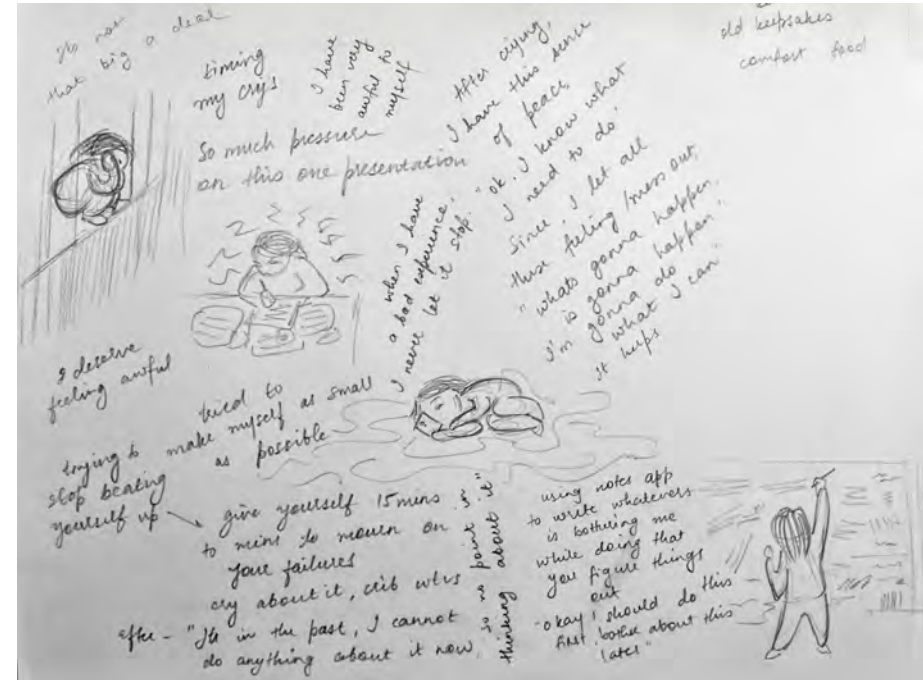 its not
that big a deal
timing
my crys
I have
been very
awful to
myself
So much pressure
on this one presentation
After crying,
I have this sense
of peace
"ok, I know what
I need to do'
Since, I let all
these feeling/mess out,
"whats gonna happen,
is gonna happen".
I'm gonna do
what I can"
it helps
old keepsakes
comfort food
when I have
a bad experience,
I never let it stop.
I deserve
feeling awful
tried to
make myself as small
as possible
trying to
stop beating
yourself up
give yourself 15 mins
to mins to mourn on
your failures
cry about it, crib
after - "Its in the past, I cannot
do anything about it now,
so no point in
thinking about it"
using notes app
to write whatevers
is bothering me
while doing that
you figure things
out
"okay I should do this
first, bother about this
later"